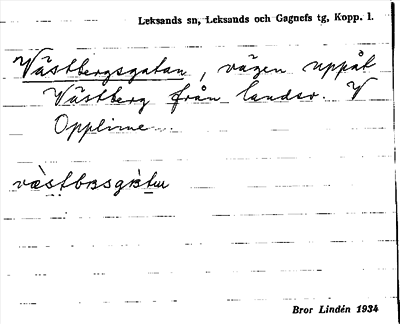 Leksands sn, Leksands och Gagnefs tg, Kopp. l.
Västbergsgatan, vägen uppåt
Västberg från landsv. V
Opplime
Bror Lindén 1934